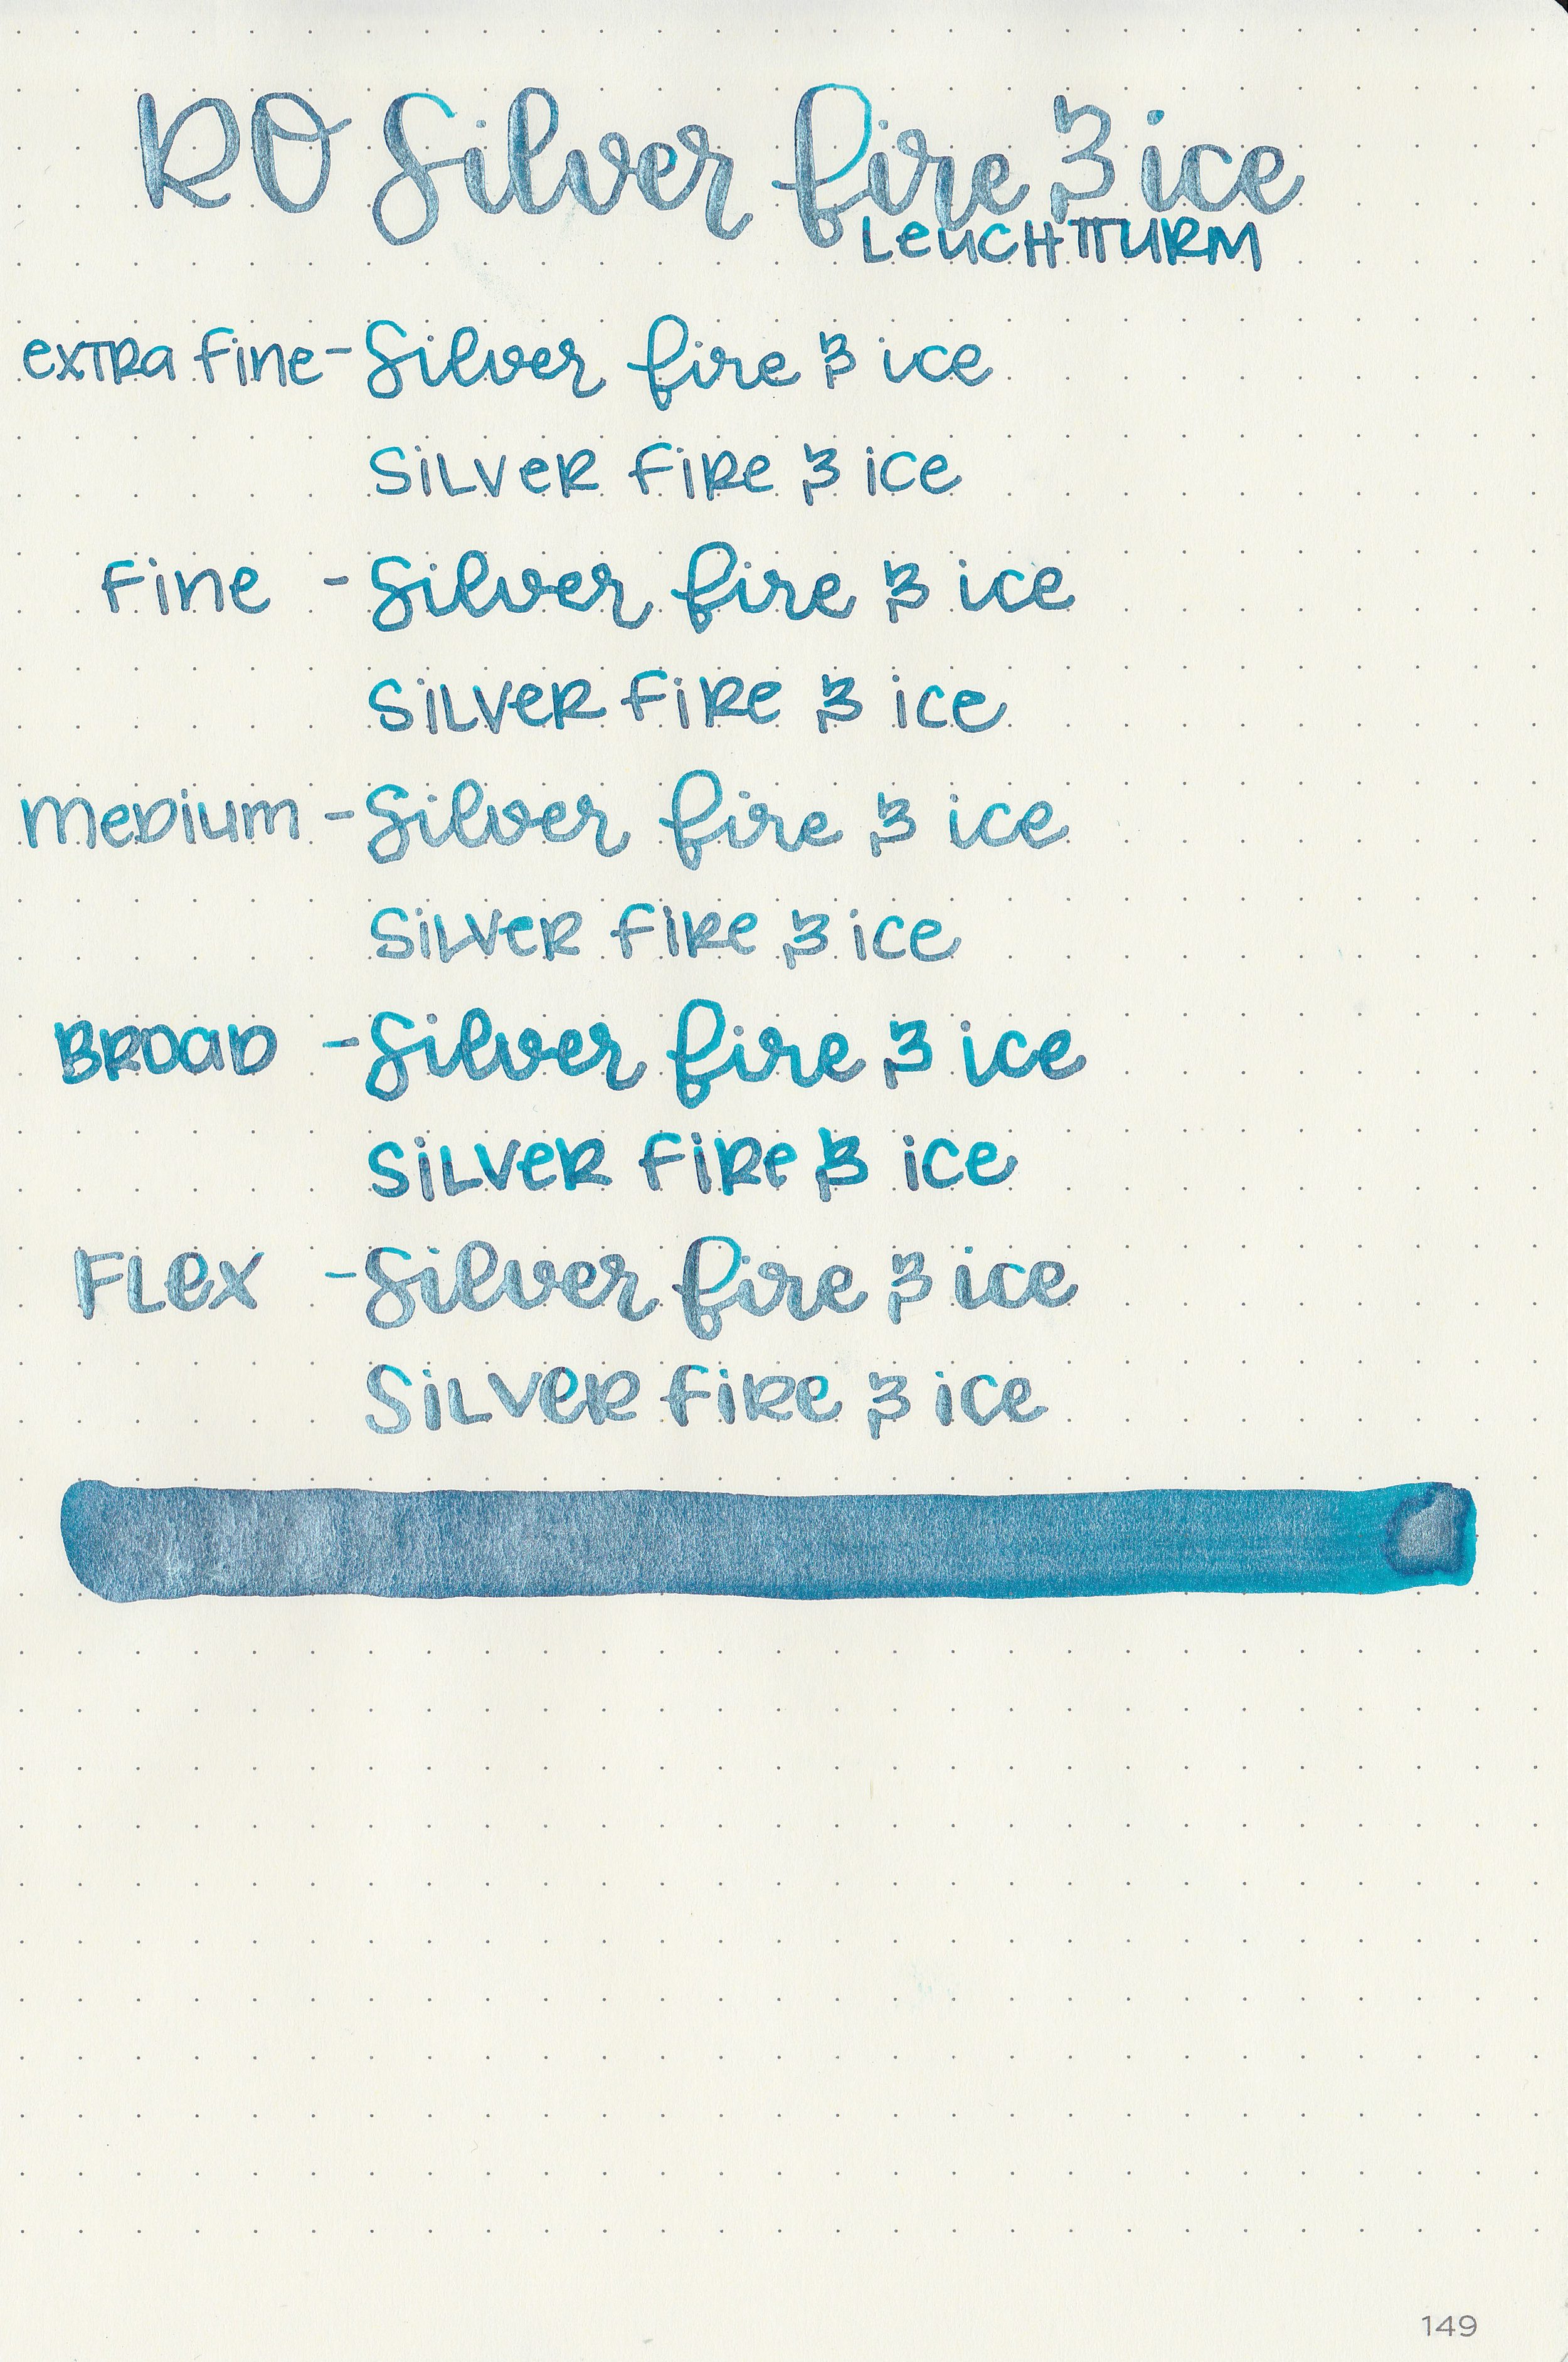 RO Silver fire & ice
LEUCHTTURM
EXTRA FINE - Silver fire & ice
SILVER FIRE & ICE
FINE - Silver fire & ice
SILVER FIRE & ICE
MEDIUM - Silver fire & ice
SILVER FIRE & ICE
BROAD - Silver fire & ice
SILVER FIRE & ICE
FLEX - Silver fire & ice
SILVER FIRE & ICE
149